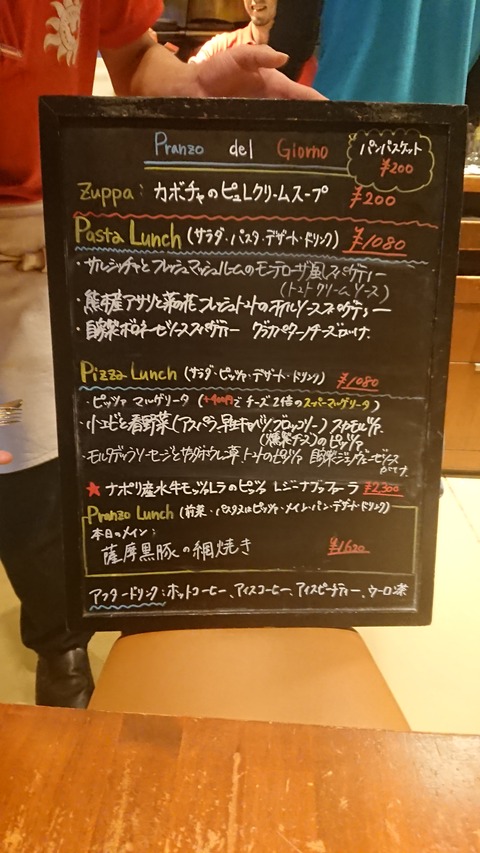 Pranzo del Giorno
パンバスケット
¥200
Zuppa: カボチャのピュレクリームスープ ¥200
Pasta Lunch (サラダ・パスタ・デザート・ドリンク) ¥1080
・サルシッチャとフレッシュマッシュルームのモンテローザ風スパゲティー
(トマトクリームソース)
・熊本産アサリと菜の花フレッシュトマトのオイルソーススパゲティー
・自家製ボロネーゼソーススパゲティー グラナパダーノチーズがけ
Pizza Lunch (サラダ・ピッツァ・デザート・ドリンク) ¥1080
・ピッツァ マルゲリータ (+400円でチーズ2倍のスーパーマルゲリータ)
・小エビと春野菜(アスパラ、早生キャベツ、ブロッコリー) スカモルツァ
(燻製チーズ)のピッツァ
・モルタデッラソーセージとサラダホウレン草、トマトのピッツァ 自家製ジェノヴェーゼソース
がけ
★ナポリ産水牛モッツァレラのピッツァ レジーナブッファーラ ¥2,300
Pranzo Lunch (前菜・パスタ又はピッツァ・メイン・パン・デザート・ドリンク)
本日のメイン:
薩摩黒豚の網焼き ¥1620
アフタードリンク:ホットコーヒー、アイスコーヒー、アイスピーチティー、ウーロン茶